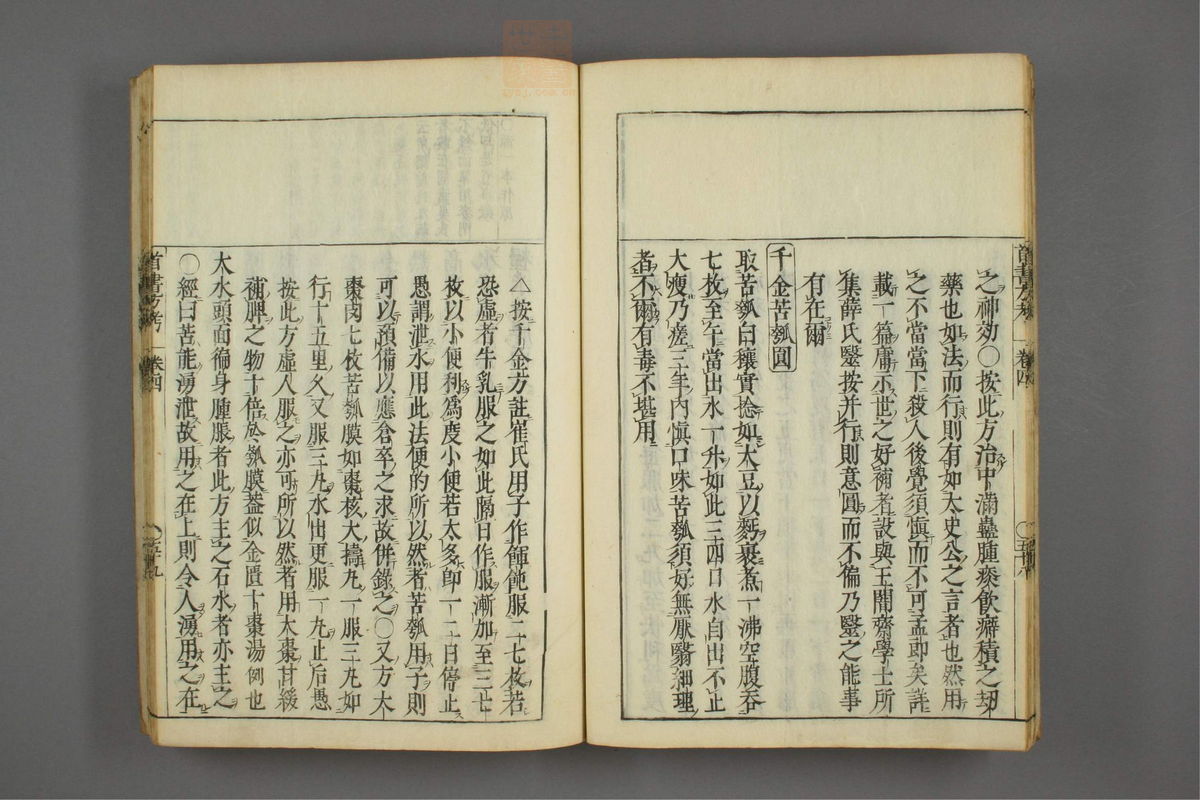 之神効〇按此方治中滿蠱腫痰飲癖積之刧
藥也如法而行則有如太史公之言者也然用
之不當當下殺人後覺須慎而不可孟卽矣詳
載一篇庸示世之好補者設與王閒齋學士所
集薛氏醫按并行則意圓而不偏乃醫之能事
有在爾
千金苦瓠圓
取苦瓠白穰實捻如大豆以麪裹煮一沸空腹吞
七枚至午當出水一升如此三四日水自出不止
大瘦乃瘥三年內慎口味苦瓠須好無厭翳細理
者不爾有毒不堪用
△按千金方註崔氏用子作餫飩服二七枚若
恐虛者牛乳服之如此隔日作服漸加至三七
枚以小便利爲度小便若太多卽一二日停止
愚謂泄水用此法便的所以然者苦瓠用子則
可以預備以應倉卒之求故併錄之〇又方大
棗肉七枚苦瓠膜如棗核大擣丸一服三丸如
行十五里久又服三丸水出更服一丸止后愚
按此方虛人服之亦可所以然者用大棗甘緩
補脾之物十倍於瓠膜葢似金匱十棗湯例也
大水頭面徧身腫脹者此方主之石水者亦主之
〇經曰苦能湧泄故用之在上則令人湧用之在
卷四
卷四